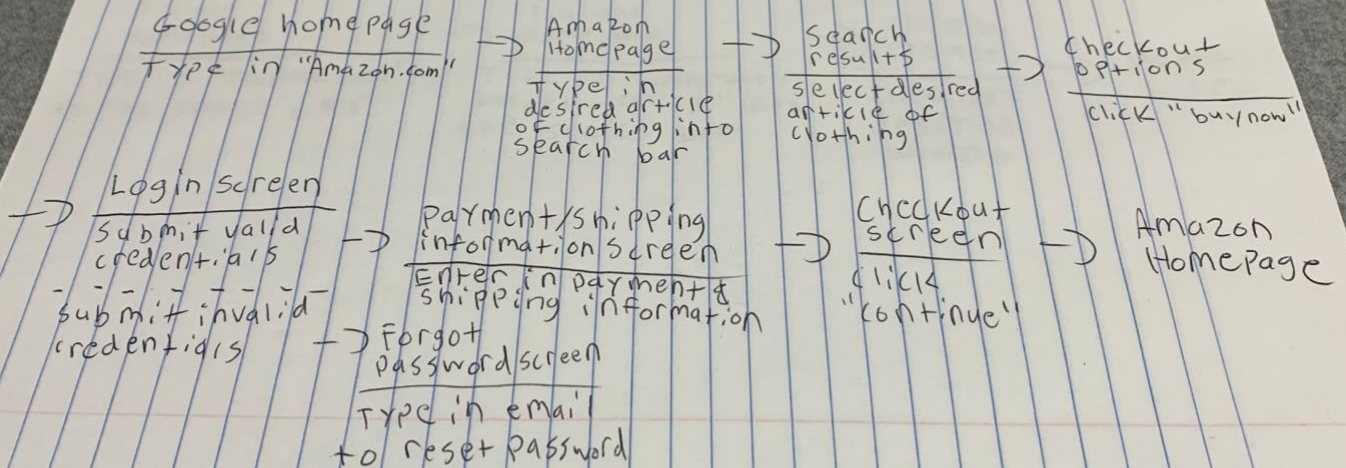 Google homepage
Type in "Amazon.com"
→ Amazon
Homepage
Type in
desired article
of clothing into
search bar
→ Search
results
select desired
article of
clothing
→ Checkout
options
click "buy now"
→ Login screen
submit valid
credentials
submit invalid
credentials
→ Payment/shipping
information screen
Enter in payment &
shipping information
→ Checkout
screen
click
"continue"
→ Amazon
Homepage
→ Forgot
password screen
Type in email
to reset password